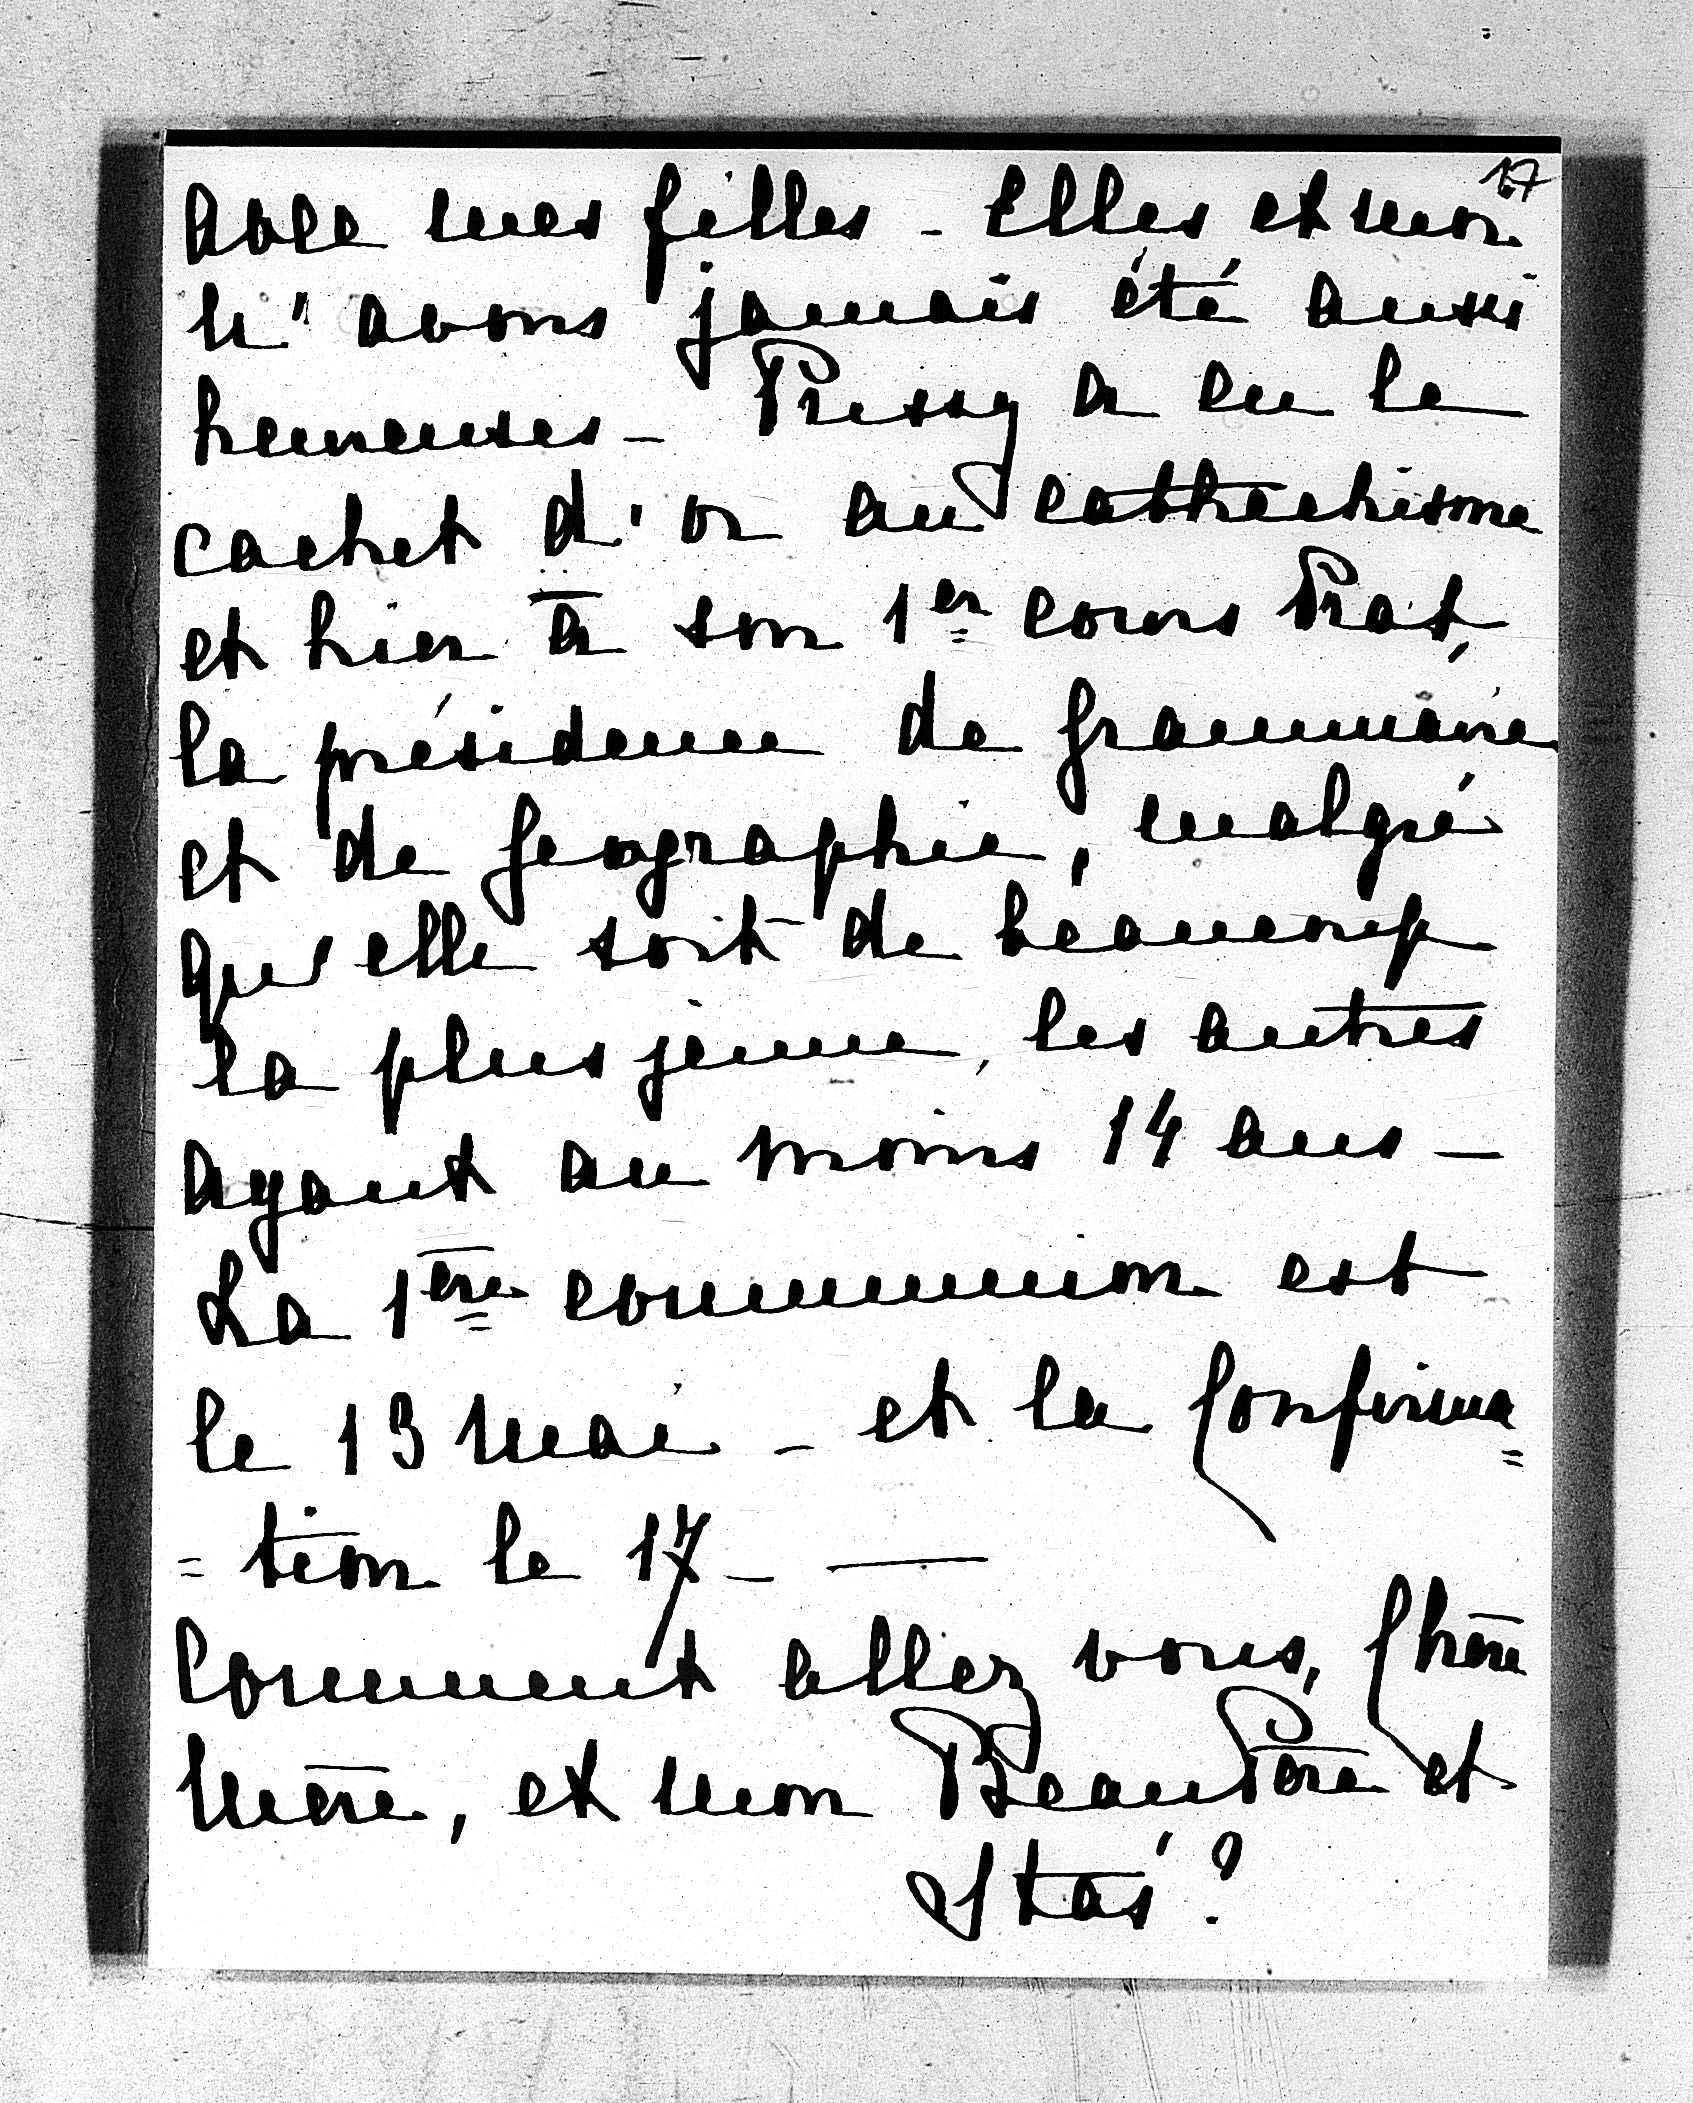 17
avec mes filles - Elles et moi
n'avons jamais été aussi
heureuses - Pressy a eu le
cachet d'or au cathechisme
et hier à son 1er cours Prat,
la présidence de grammaire
et de geographie, malgré
qu'elle soit de beaucoup
la plus jeune, les autres
ayant au moins 14 ans -
La 1ère communion est
le 13 mai - et la Confirma=
=tion le 17 - —
Comment allez vous, Chère
Mère, et mon Beau Père et
Stas ?